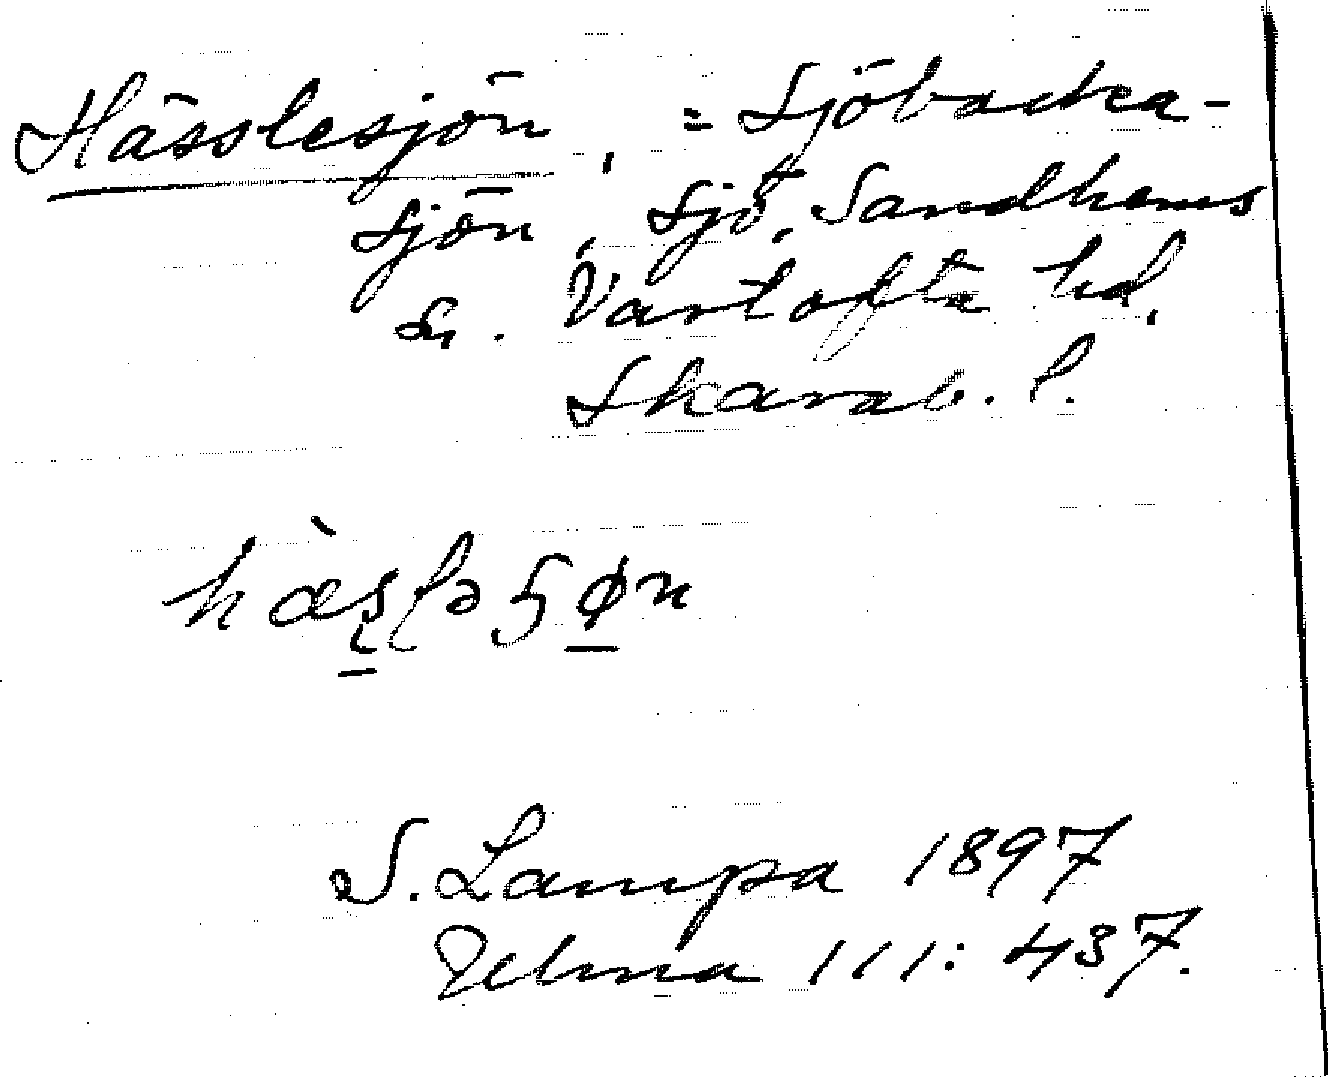 Hässlesjön, = Sjöbacka-
sjön, sjö, Sandhems
sn. Vartofta hd,
Skarab. l.
hæ̀s̱lə ɧøn
S. Lampa 1897
Ulma 111: 437.